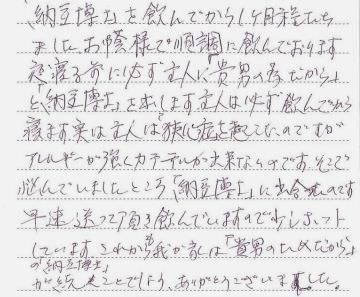 「納豆博士」を飲んでから1ヶ月程たち
ました。お陰様で順調に飲んでおります
夜寝る前に必ず主人に「貴男の為だから」
と「納豆博士」を出します主人は必ず飲んでから
寝ます実は主人は「狭心症」を起こしたのですが
アレルギーが強くカテーテルが出来ないのです。そこで
悩んでいましたところ「納豆博士」に出会ったのです
早速送って頂き飲んでいますので少しホット
しています。これからも我が家は「貴男のためだから」
の「納豆博士」
が続くことでしょう、ありがとうございました。